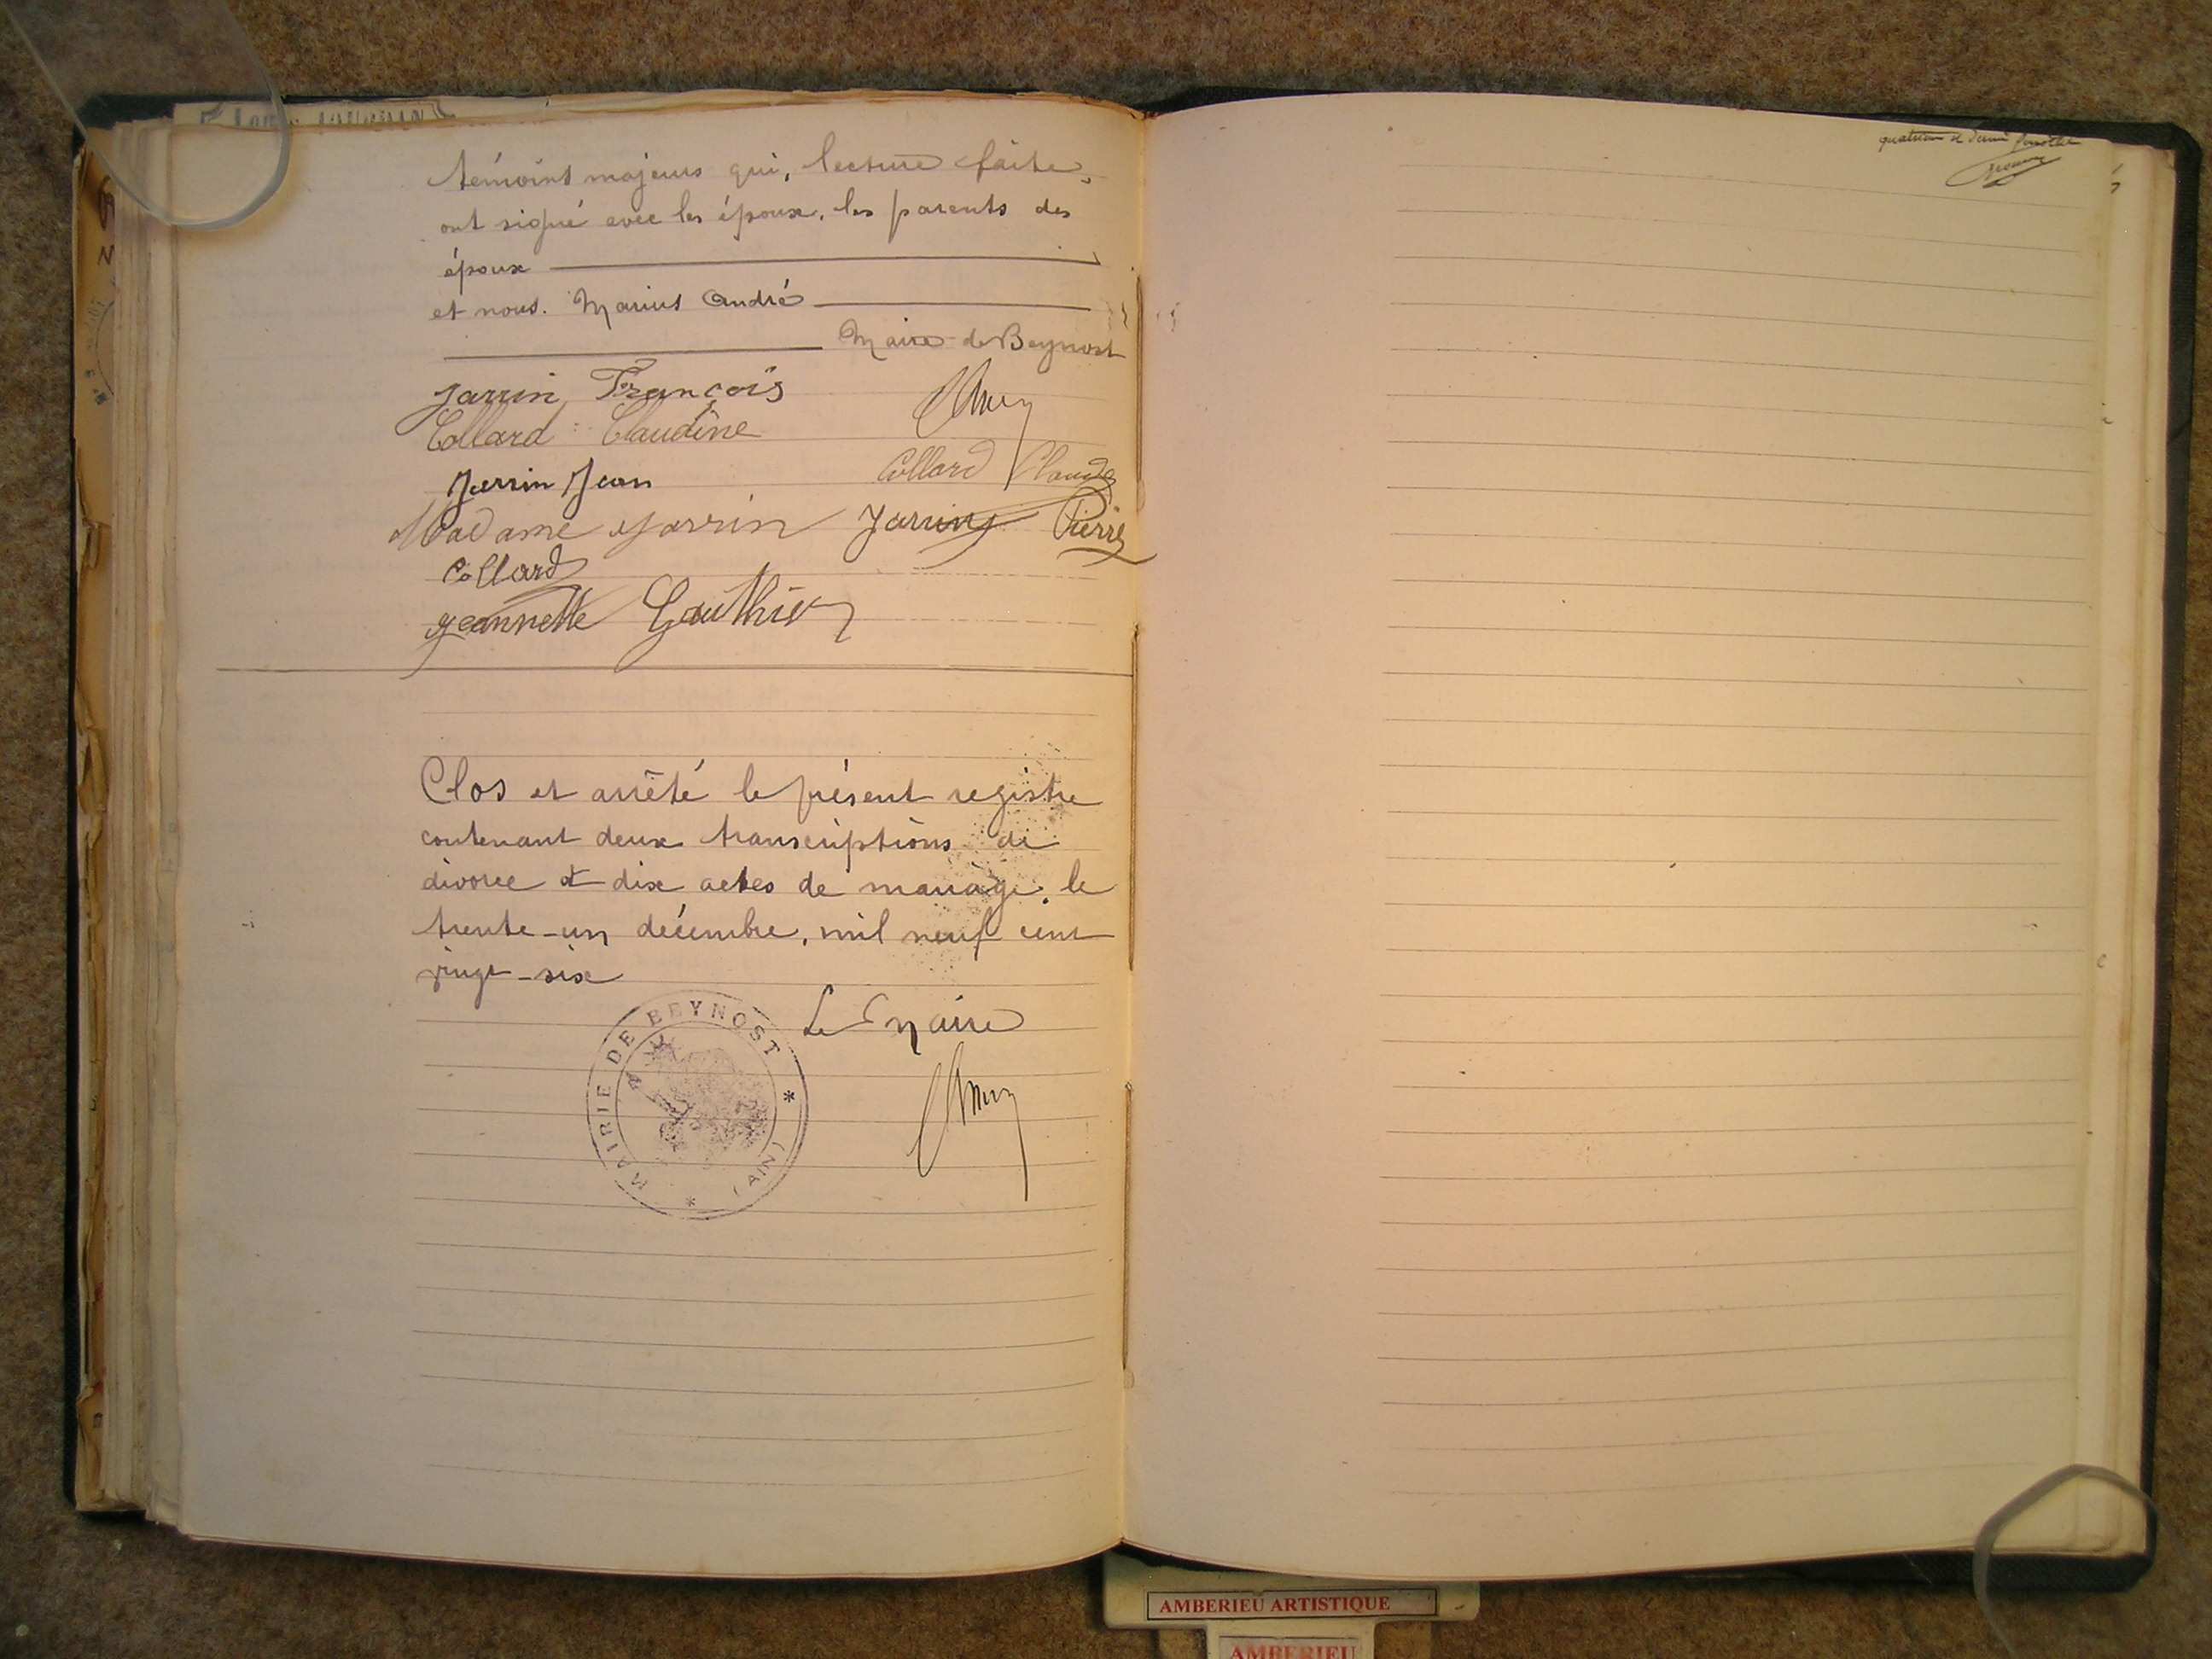 témoins majeurs qui, lecture faite,
ont signé avec les époux, les parents des
époux
et nous. Marius André
Maire de Beynost
Jarrin François
Collard Claudine
Jarrin Jean
Collard Claude
Madame Jarrin
Jarrin Pierre
Collard
Jeannette Gauthier
Clos et arrêté le présent registre
contenant deux transcriptions de
divorce et dix actes de mariage. le
trente-un décembre, mil neuf cent
vingt-six
Le Maire
MAIRIE DE BEYNOST
(AIN)
quatrième et dernier
AMBERIEU ARTISTIQUE
AMBERIEU